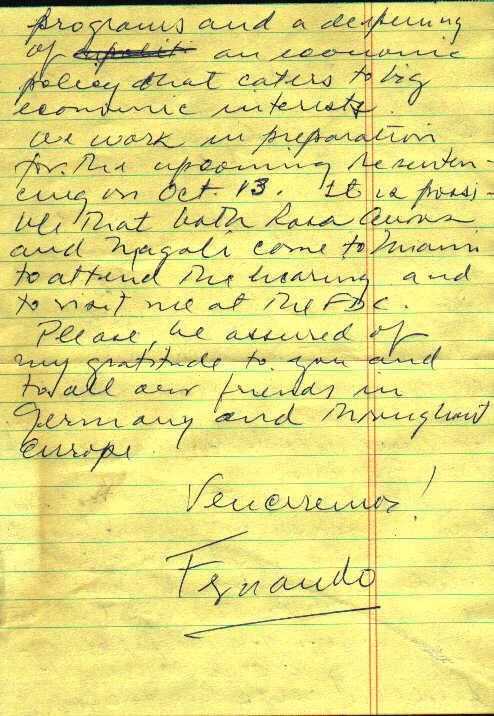 programs and a deepening
of apolit an economic
policy that caters to big
economic interests.
We work in preparation
for the upcoming resenten-
cing on Oct. 13. It is possi-
ble that both Rosa Aurora
and Magali come to Miami
to attend the hearing and
to visit me at the FDC.
Please, be assured of
my gratitude to you and
to all our friends in
Germany and throughout
Europe
Venceremos!
Fernando